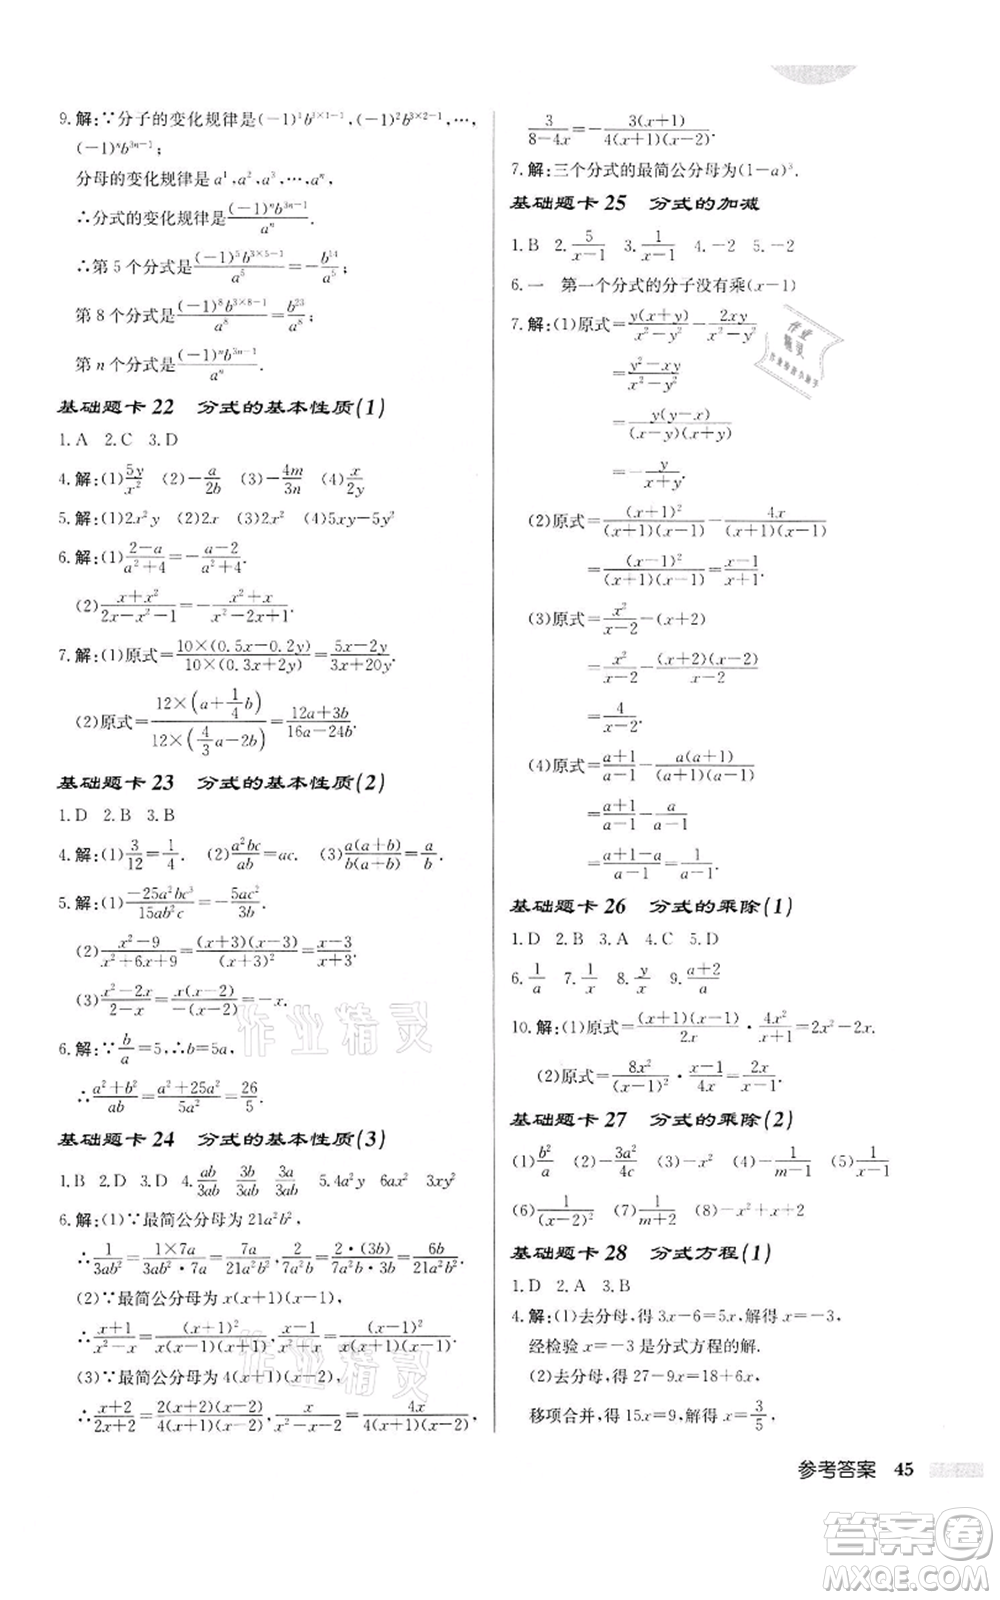 9.解:∵分子的变化规律是(-1)¹b^{3×1-1},(-1)²b^{3×2-1},…,
(-1)ⁿb^{3n-1};
分母的变化规律是a¹,a²,a³,…,aⁿ,
∴分式的变化规律是\frac{(-1)ⁿb^{3n-1}}{aⁿ}.
∴第5个分式是\frac{(-1)⁵b^{3×5-1}}{a⁵}=-\frac{b^{14}}{a⁵};
第8个分式是\frac{(-1)⁸b^{3×8-1}}{a⁸}=\frac{b^{23}}{a⁸};
第n个分式是\frac{(-1)ⁿb^{3n-1}}{aⁿ}.
基础题卡22 分式的基本性质(1)
1.A 2.C 3.D
4.解:(1)\frac{5y}{x²} (2)-\frac{a}{2b} (3)-\frac{4m}{3n} (4)\frac{x}{2y}
5.解:(1)2x²y (2)2x (3)2x² (4)5xy-5y²
6.解:(1)\frac{2-a}{a²+4}=-\frac{a-2}{a²+4}.
(2)\frac{x+x²}{2x-x²-1}=-\frac{x²+x}{x²-2x+1}.
7.解:(1)原式=\frac{10×(0.5x-0.2y)}{10×(0.3x+2y)}=\frac{5x-2y}{3x+20y}.
(2)原式=\frac{12×(a+\frac{1}{4}b)}{12×(\frac{4}{3}a-2b)}=\frac{12a+3b}{16a-24b}.
基础题卡23 分式的基本性质(2)
1.D 2.B 3.B
4.解:(1)\frac{3}{12}=\frac{1}{4}. (2)\frac{a²bc}{ab}=ac. (3)\frac{a(a+b)}{b(a+b)}=\frac{a}{b}.
5.解:(1)\frac{-25a²bc³}{15ab²c}=-\frac{5ac²}{3b}.
(2)\frac{x²-9}{x²+6x+9}=\frac{(x+3)(x-3)}{(x+3)²}=\frac{x-3}{x+3}.
(3)\frac{x²-2x}{2-x}=\frac{x(x-2)}{-(x-2)}=-x.
6.解:∵\frac{b}{a}=5,∴b=5a,
∴\frac{a²+b²}{ab}=\frac{a²+25a²}{5a²}=\frac{26}{5}.
基础题卡24 分式的基本性质(3)
1.B 2.D 3.D 4.\frac{ab}{3ab} \frac{3b}{3ab} \frac{3a}{3ab} 5.4x 6ax²
6.解:(1)∵最简公分母为21a²b²,
∴\frac{1}{3ab²}=\frac{1×7a}{3ab²·7a}=\frac{7a}{21a²b²},\frac{2}{7a²b}=\frac{2·(3b)}{7a²b·(3b)}=\frac{6b}{21a²b²}.
(2)∵最简公分母为x(x+1)(x-1),
∴\frac{x+1}{x²-x}=\frac{(x+1)²}{x(x-1)(x+1)},\frac{x-1}{x²+x}=\frac{(x-1)²}{x(x+1)(x-1)}.
(3)∵最简公分母为4(x+1)(x-2),
∴\frac{x+2}{2x+2}=\frac{2(x+2)(x-2)}{4(x+1)(x-2)},\frac{x}{x²-x-2}=\frac{4x}{4(x+1)(x-2)},
\frac{3}{8-4x}=-\frac{3(x+1)}{4(x+1)(x-2)}.
7.解:三个分式的最简公分母为(1-a)³.
基础题卡25 分式的加减
1.B 2.\frac{5}{x-1} 3.\frac{1}{x-1} 4.-2 5.-2
6.一 第一个分式的分子没有乘(x-1)
7.解:(1)原式=\frac{y(x+y)}{x²-y²}-\frac{2xy}{x²-y²}
=\frac{y²-xy}{x²-y²}
=\frac{y(y-x)}{(x-y)(x+y)}
=-\frac{y}{x+y}.
(2)原式=\frac{(x+1)²}{(x+1)(x-1)}-\frac{4x}{(x+1)(x-1)}
=\frac{(x-1)²}{(x+1)(x-1)}=\frac{x-1}{x+1}.
(3)原式=\frac{x²}{x-2}-(x+2)
=\frac{x²}{x-2}-\frac{(x+2)(x-2)}{x-2}
=\frac{4}{x-2}.
(4)原式=\frac{a+1}{a-1}-\frac{a(a+1)}{(a+1)(a-1)}
=\frac{a+1}{a-1}-\frac{a}{a-1}
=\frac{a+1-a}{a-1}=\frac{1}{a-1}.
基础题卡26 分式的乘除(1)
1.D 2.B 3.A 4.C 5.D
6.\frac{1}{a} 7.\frac{1}{x} 8.\frac{y}{x} 9.\frac{a+2}{a}
10.解:(1)原式=\frac{(x+1)(x-1)}{2x}·\frac{4x²}{x+1}=2x²-2x.
(2)原式=\frac{8x²}{(x-1)²}·\frac{x-1}{4x}=\frac{2x}{x-1}.
基础题卡27 分式的乘除(2)
(1)\frac{b²}{a} (2)-\frac{3a²}{4c} (3)-x² (4)-\frac{1}{m-1} (5)\frac{1}{x+1}
(6)\frac{1}{(x-2)²} (7)\frac{1}{m+2} (8)-x²+x
基础题卡28 分式方程(1)
1.D 2.A 3.B
4.解:(1)去分母,得3x-6=5x,解得x=-3,
经检验x=-3是分式方程的解.
(2)去分母,得27-9x=18+6x,
移项合并,得15x=9,解得x=\frac{3}{5},
参考答案 45
作业精灵
作业精灵
作业精灵
答案卷
MXQE.COM